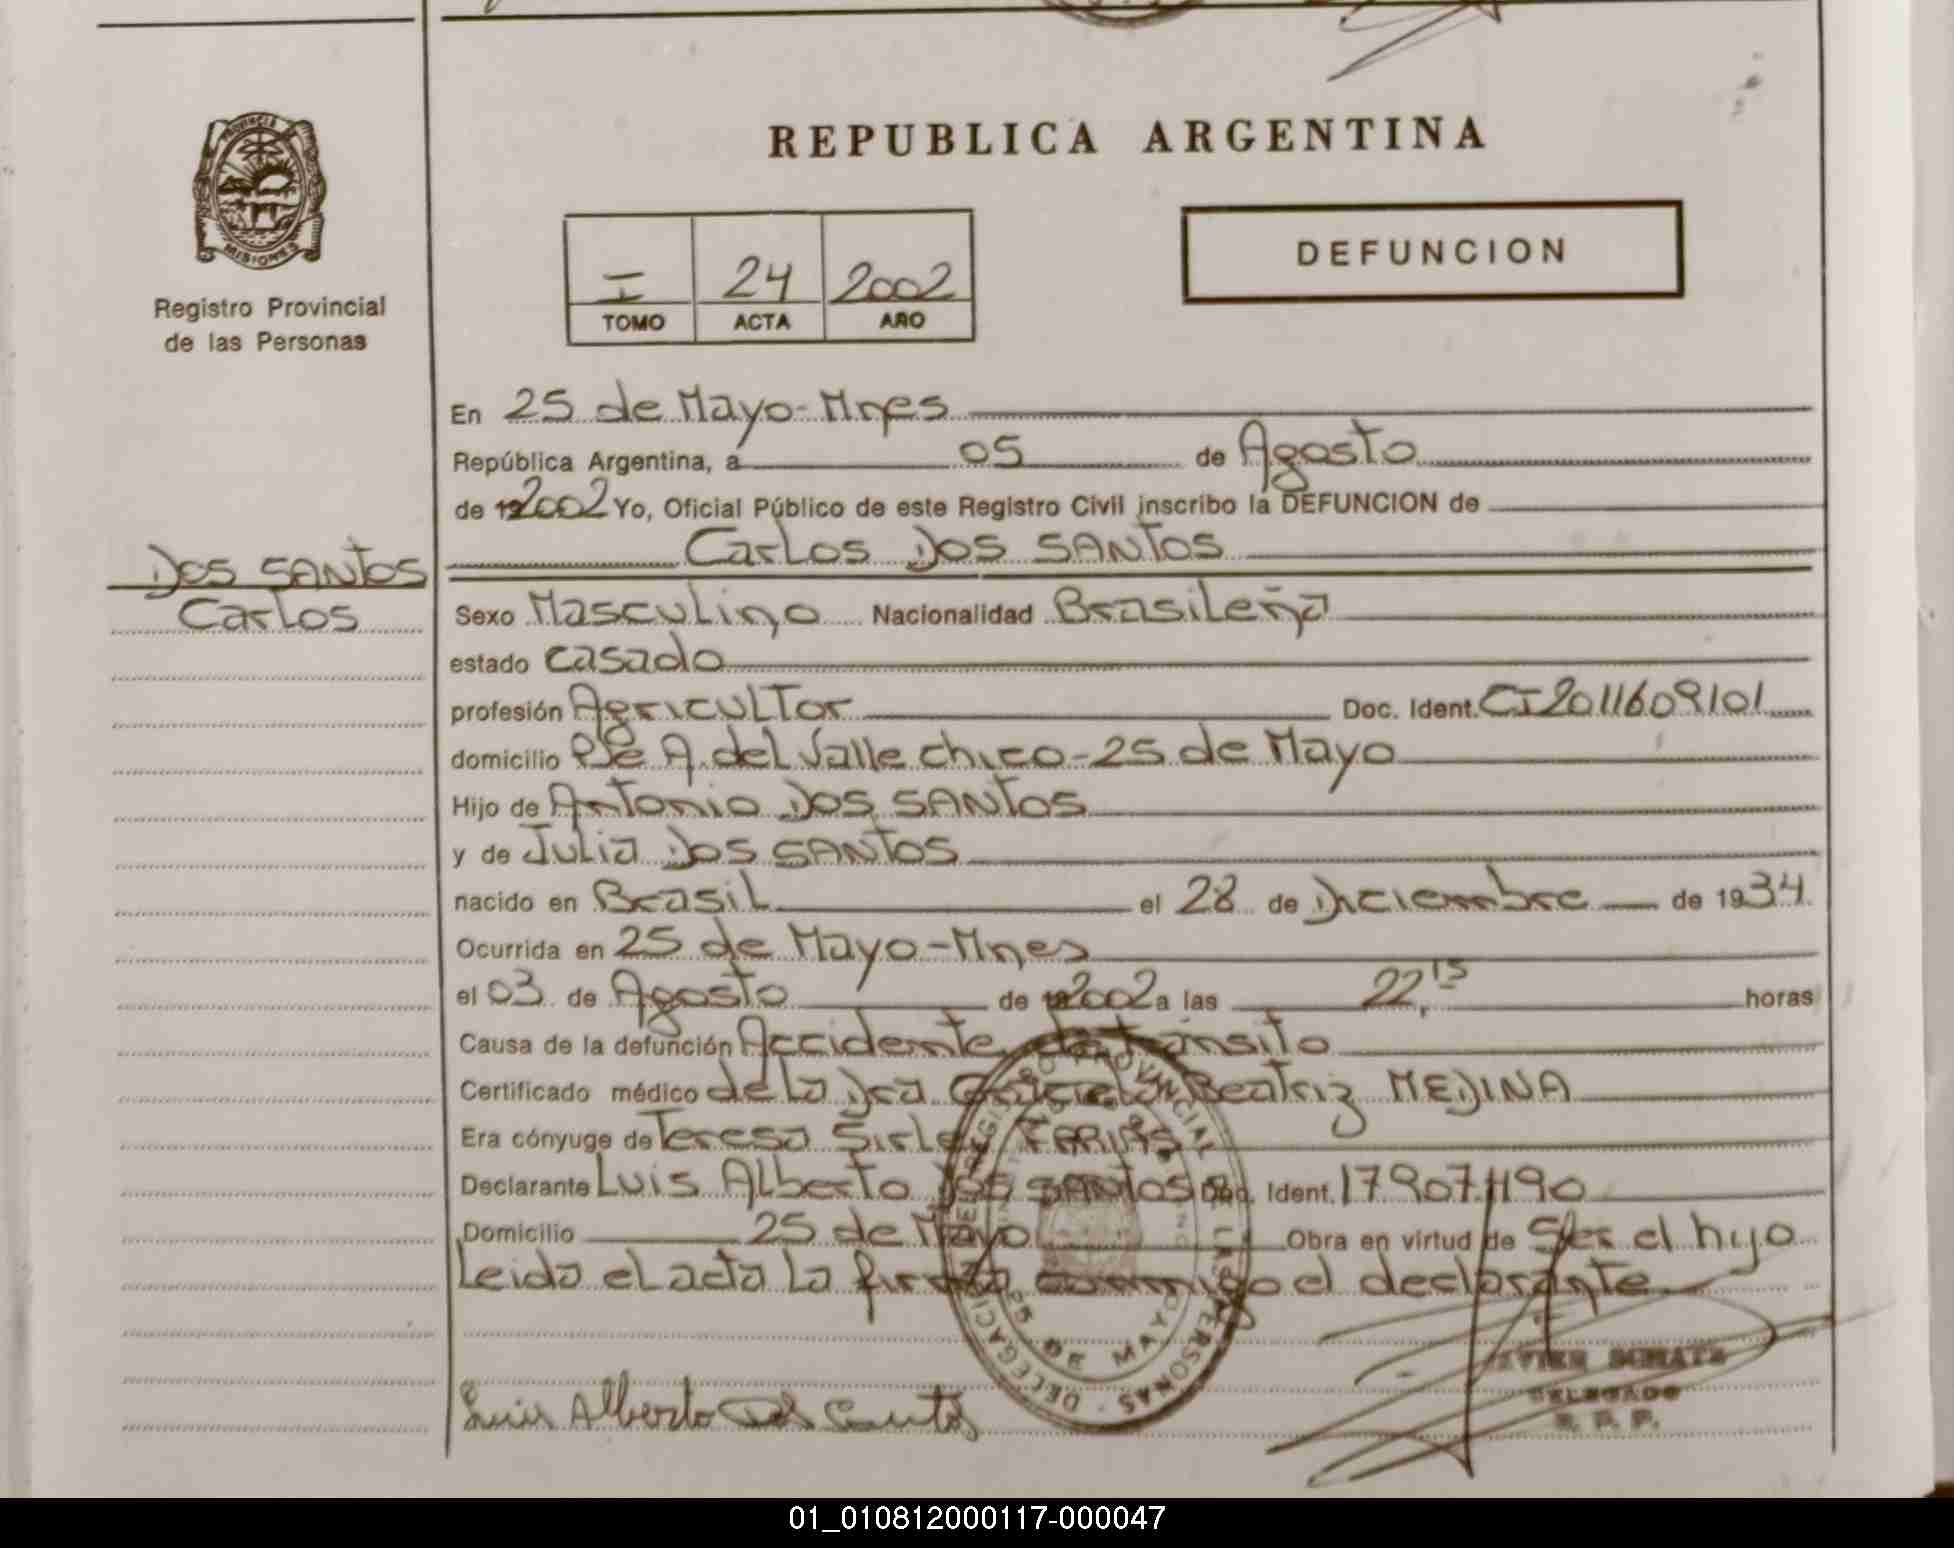 REPUBLICA ARGENTINA
PROVINCIA
MISIONES
Registro Provincial
de las Personas
I 24 2002
TOMO ACTA AÑO
DEFUNCION
En 25 de Mayo-Mnes
República Argentina, a 05 de Agosto
de 2002 Yo, Oficial Público de este Registro Civil inscribo la DEFUNCION de
Carlos Dos SANTOS
Dos SANTOS
Carlos
Sexo Masculino Nacionalidad Brasileña
estado casado
profesión Agricultor Doc. Ident. CI2011609101
domicilio Pje A. del Valle chico-25 de Mayo
Hijo de Antonio Dos SANTOS
y de Julia Dos SANTOS
nacido en Brasil el 28 de Diciembre de 1934
Ocurrida en 25 de Mayo-Mnes
el 03 de Agosto de 2002 a las 22,15 horas
Causa de la defunción Accidente de tránsito
Certificado médico de la Dra Graciela Beatriz MEDINA
Era cónyuge de Teresa Sirley FARIAS
Declarante Luis Alberto Dos SANTOS Doc. Ident. 17907.190
Domicilio 25 de Mayo Obra en virtud de Ser el hijo
Leida el acta la firma conmigo el declarante
REGISTRO PROVINCIAL DE LAS PERSONAS - DELEGACION
25 DE MAYO
Luis Alberto Dos Santos
DELEGADO
R. P. P.
01_010812000117-000047